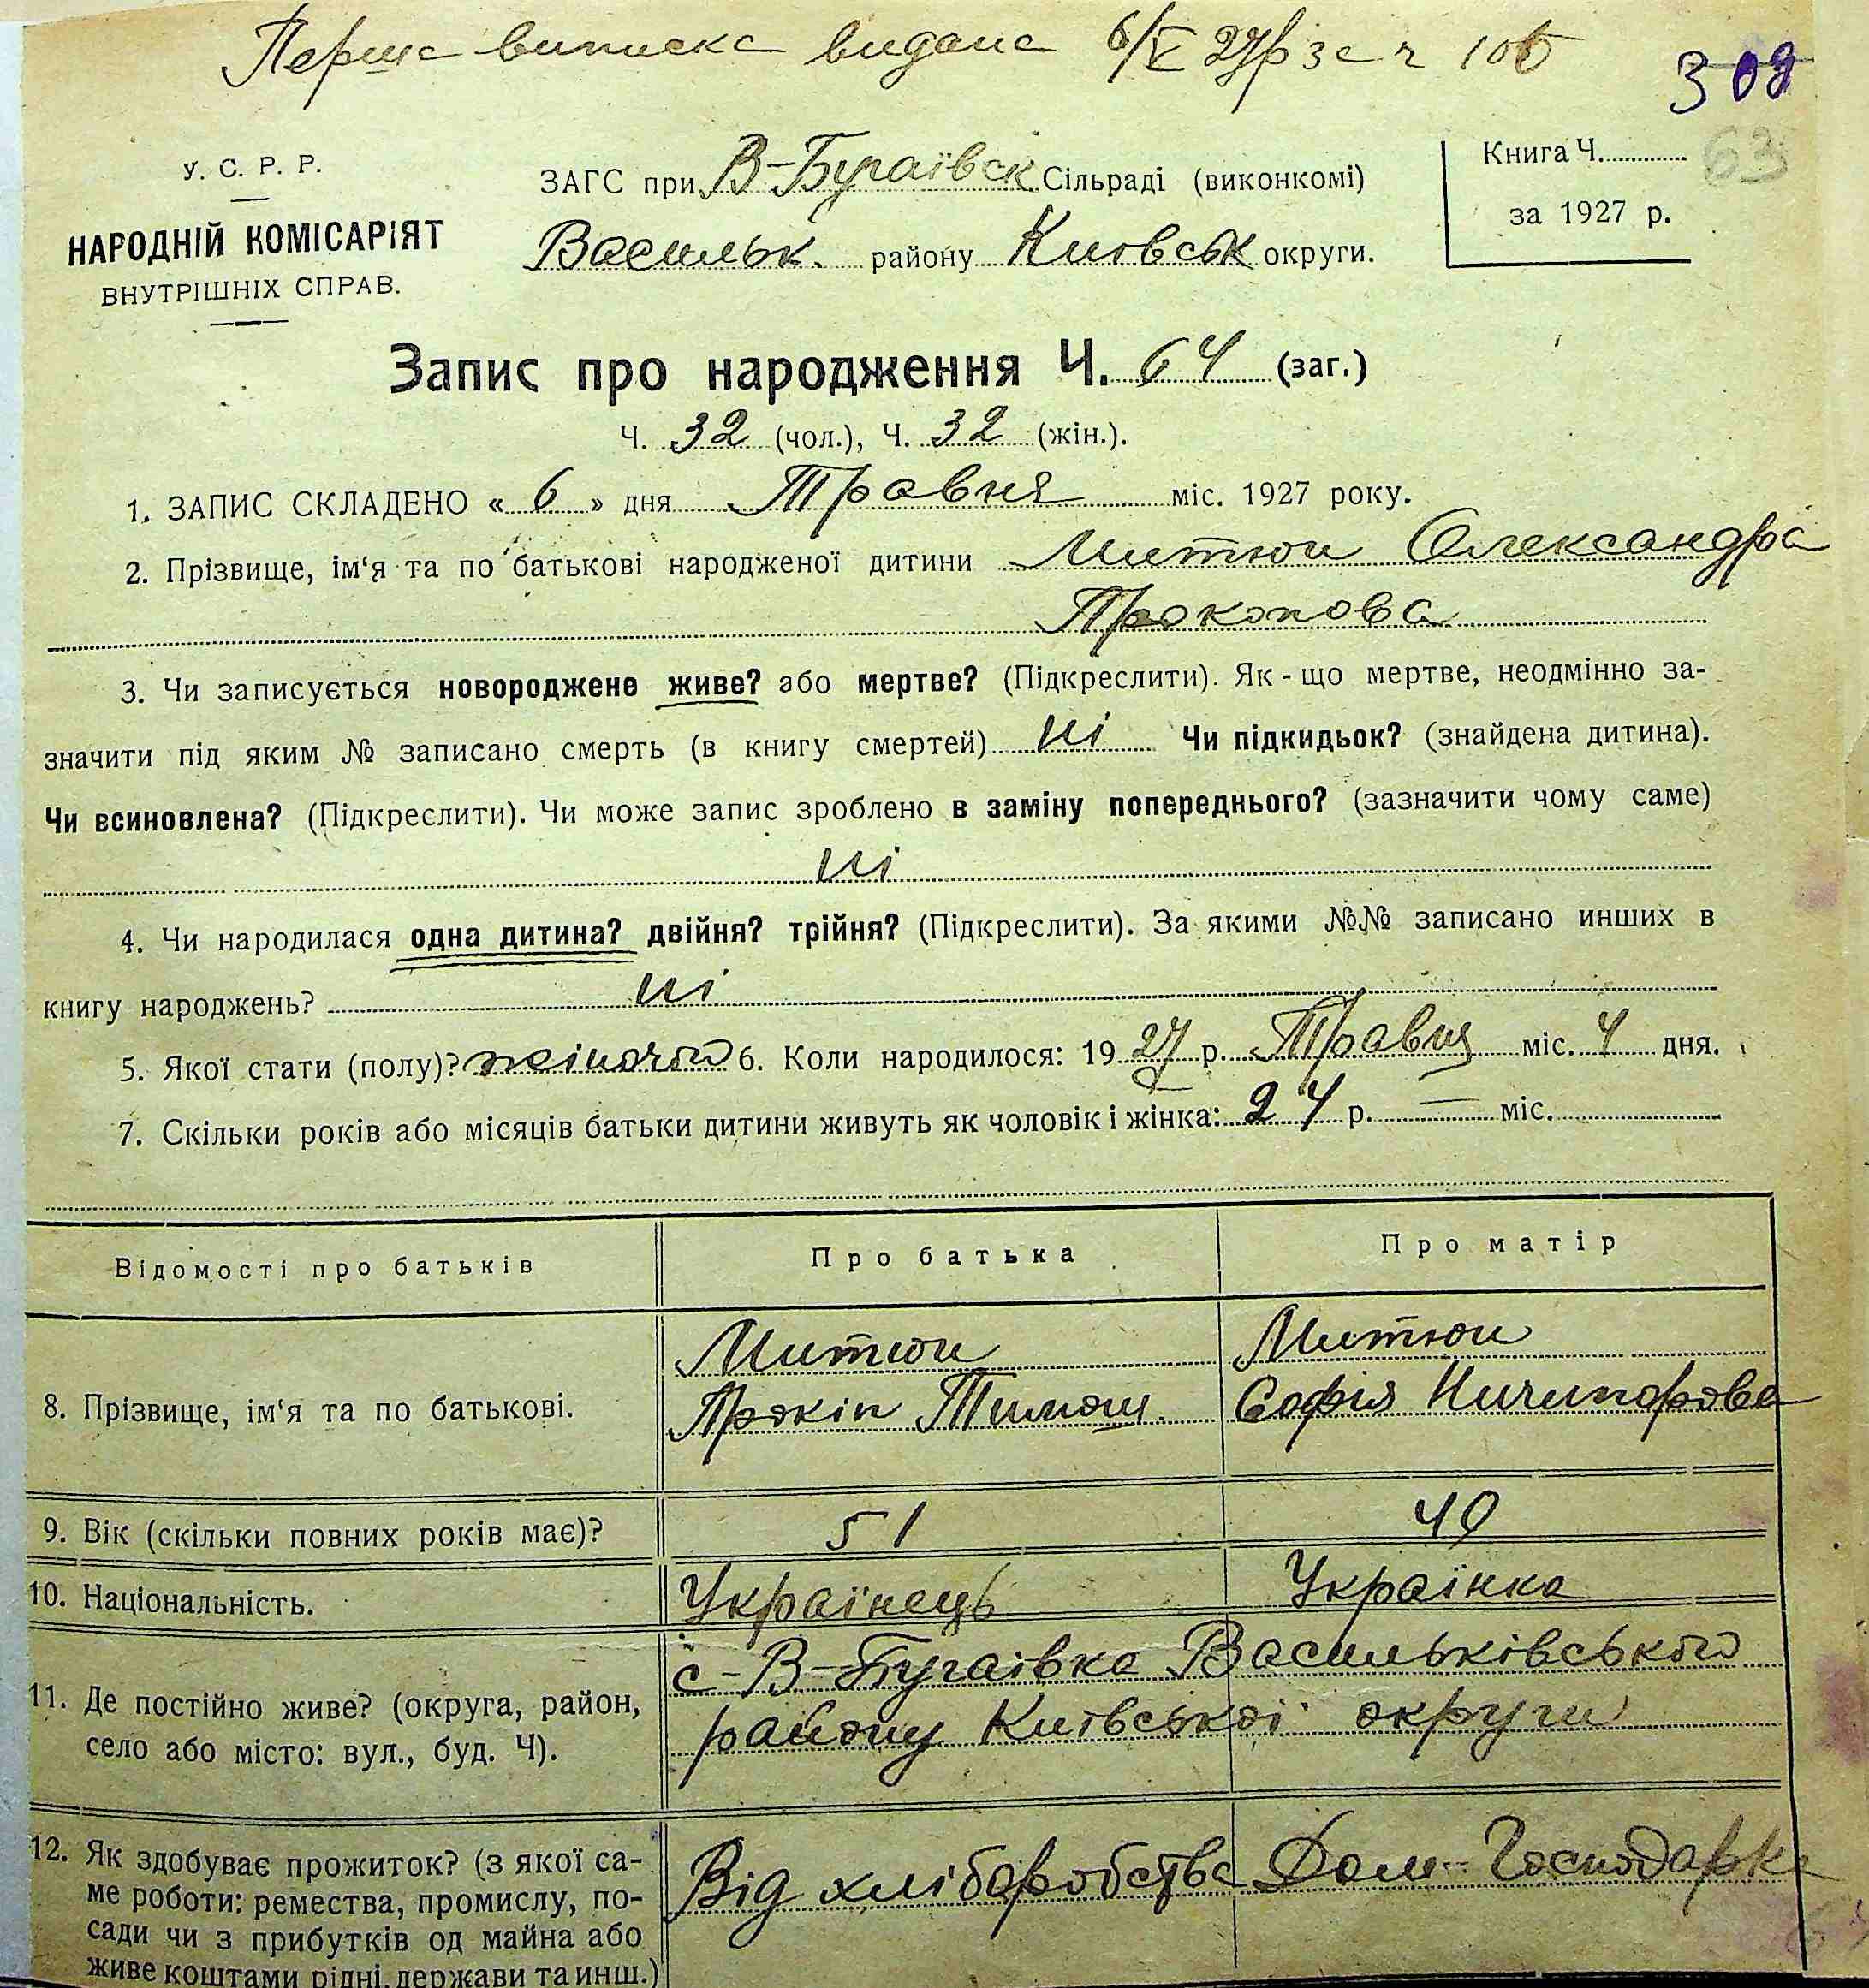 Перша виписка видана 6/V 27р за ч 105
309
У. С. Р. Р.
НАРОДНІЙ КОМІСАРІЯТ
ВНУТРІШНІХ СПРАВ.
ЗАГС при В-Бугаївск Сільраді (виконкомі)
Васильк. району Київськ округи.
Книга Ч. 63
за 1927 р.
Запис про народження Ч. 64 (заг.)
Ч. 32 (чол.), Ч. 32 (жін.).
1. ЗАПИС СКЛАДЕНО « 6 » дня Травня міс. 1927 року.
2. Прізвище, ім'я та по батькові народженої дитини Митюи Олександра
Прокопова
3. Чи записується новороджене живе? або мертве? (Підкреслити). Як-що мертве, неодмінно за-
значити під яким № записано смерть (в книгу смертей) ні Чи підкидьок? (знайдена дитина).
Чи всиновлена? (Підкреслити). Чи може запис зроблено в заміну попереднього? (зазначити чому саме)
ні
4. Чи народилася одна дитина? двійня? трійня? (Підкреслити). За якими №№ записано инших в
книгу народжень? ні
5. Якої стати (полу)? жіночой 6. Коли народилося: 1927 р. Травня міс. 4 дня.
7. Скільки років або місяців батьки дитини живуть як чоловік і жінка: 24 р. — міс.
Відомості про батьків Про батька Про матір
Митюи Митюи
8. Прізвище, ім'я та по батькові. Прокіп Тимош. Софія Ничипорова
9. Вік (скільки повних років має)? 51 49
10. Національність. Українець Українка
с-В-Бугаївка Васильківського
11. Де постійно живе? (округа, район, району Київської округи
село або місто: вул., буд. Ч).
12. Як здобуває прожиток? (з якої са- Від хліборобства Дом-Господарка
ме роботи: ремества, промислу, по-
сади чи з прибутків од майна або
живе коштами рідні, держави та инш.)